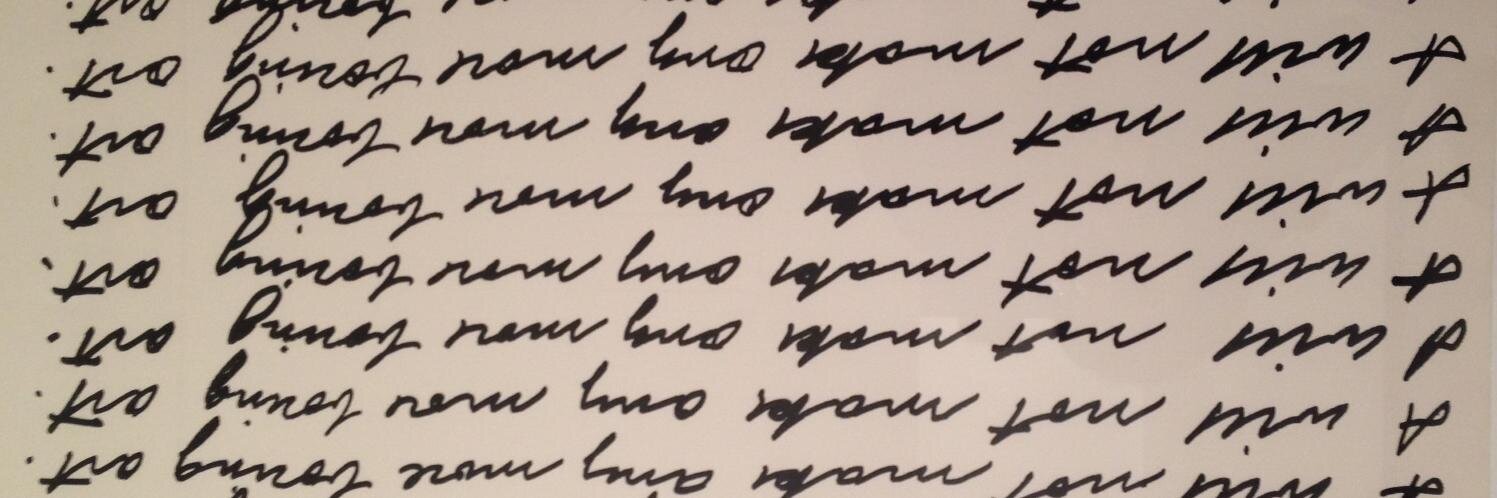 I will not make any more boring art.
I will not make any more boring art.
I will not make any more boring art.
I will not make any more boring art.
I will not make any more boring art.
I will not make any more boring art.
I will not make any more boring art.
boring art.